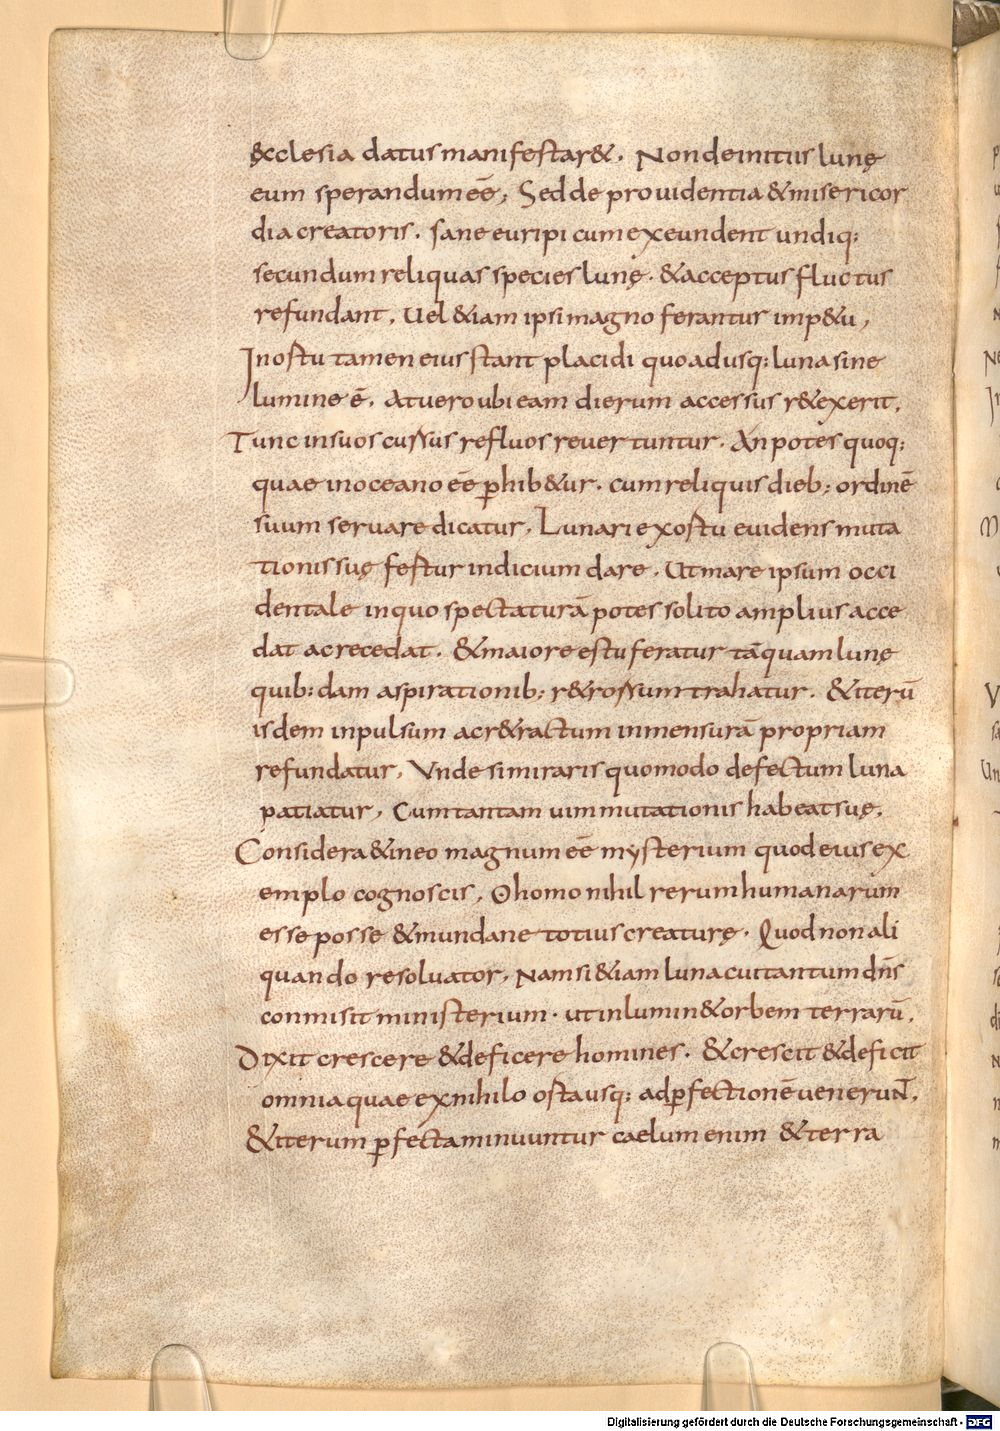 &cclesia datus manifestar&. Non deinitiis lunę
eum sperandum eē; Sed de prouidentia & misericor
dia creatoris. sane euripi cum exeundent undiq;
secundum reliquas species lunę. & acceptus fluctus
refundant. Uel &iam ipsi magno ferantur imp&u,
In ostu tamen eius stant placidi quo adusq; luna sine
lumine ē. At uero ubi eam dierum accessus r&exerit.
Tunc in suos cussus refluos reuertuntur. An potes quoq;
quae in oceano eē ꝑhib&ur. cum reliquis dieb; ordinē
suum seruare dicatur. Lunari exostu euidens muta
tionis suę festur indicium dare. Ut mare ipsum occi
dentale in quo spectaturā potes solito amplius acce
dat ac recedat. & maiore estu feratur tāquam lunę
quib;dam aspirationib; r&rossum trahatur. & iterū
isdem inpulsum ac r&ractum in mensurā propriam
refundatur. Vnde si miraris quomodo defectum luna
patiatur, Cum tantam uim mutationis habeat suę.
Considera & in eo magnum eē mysterium quod eius ex
emplo cognoscis, O homo nihil rerum humanarum
esse posse & mundane totius creaturę. Quod non ali
quando resoluator. Nam si &iam luna cui tantum dn̄s
conmisit ministerium. ut inlumin& orbem terrarū.
Dixit crescere & deficere homines. & crescit & deficit
omnia quae ex nihilo ostausq; ad ꝑfectionē uenerunt̄.
& iterum ꝑfecta minuuntur caelum enim & terra
Digitalisierung gefördert durch die Deutsche Forschungsgemeinschaft - DFG